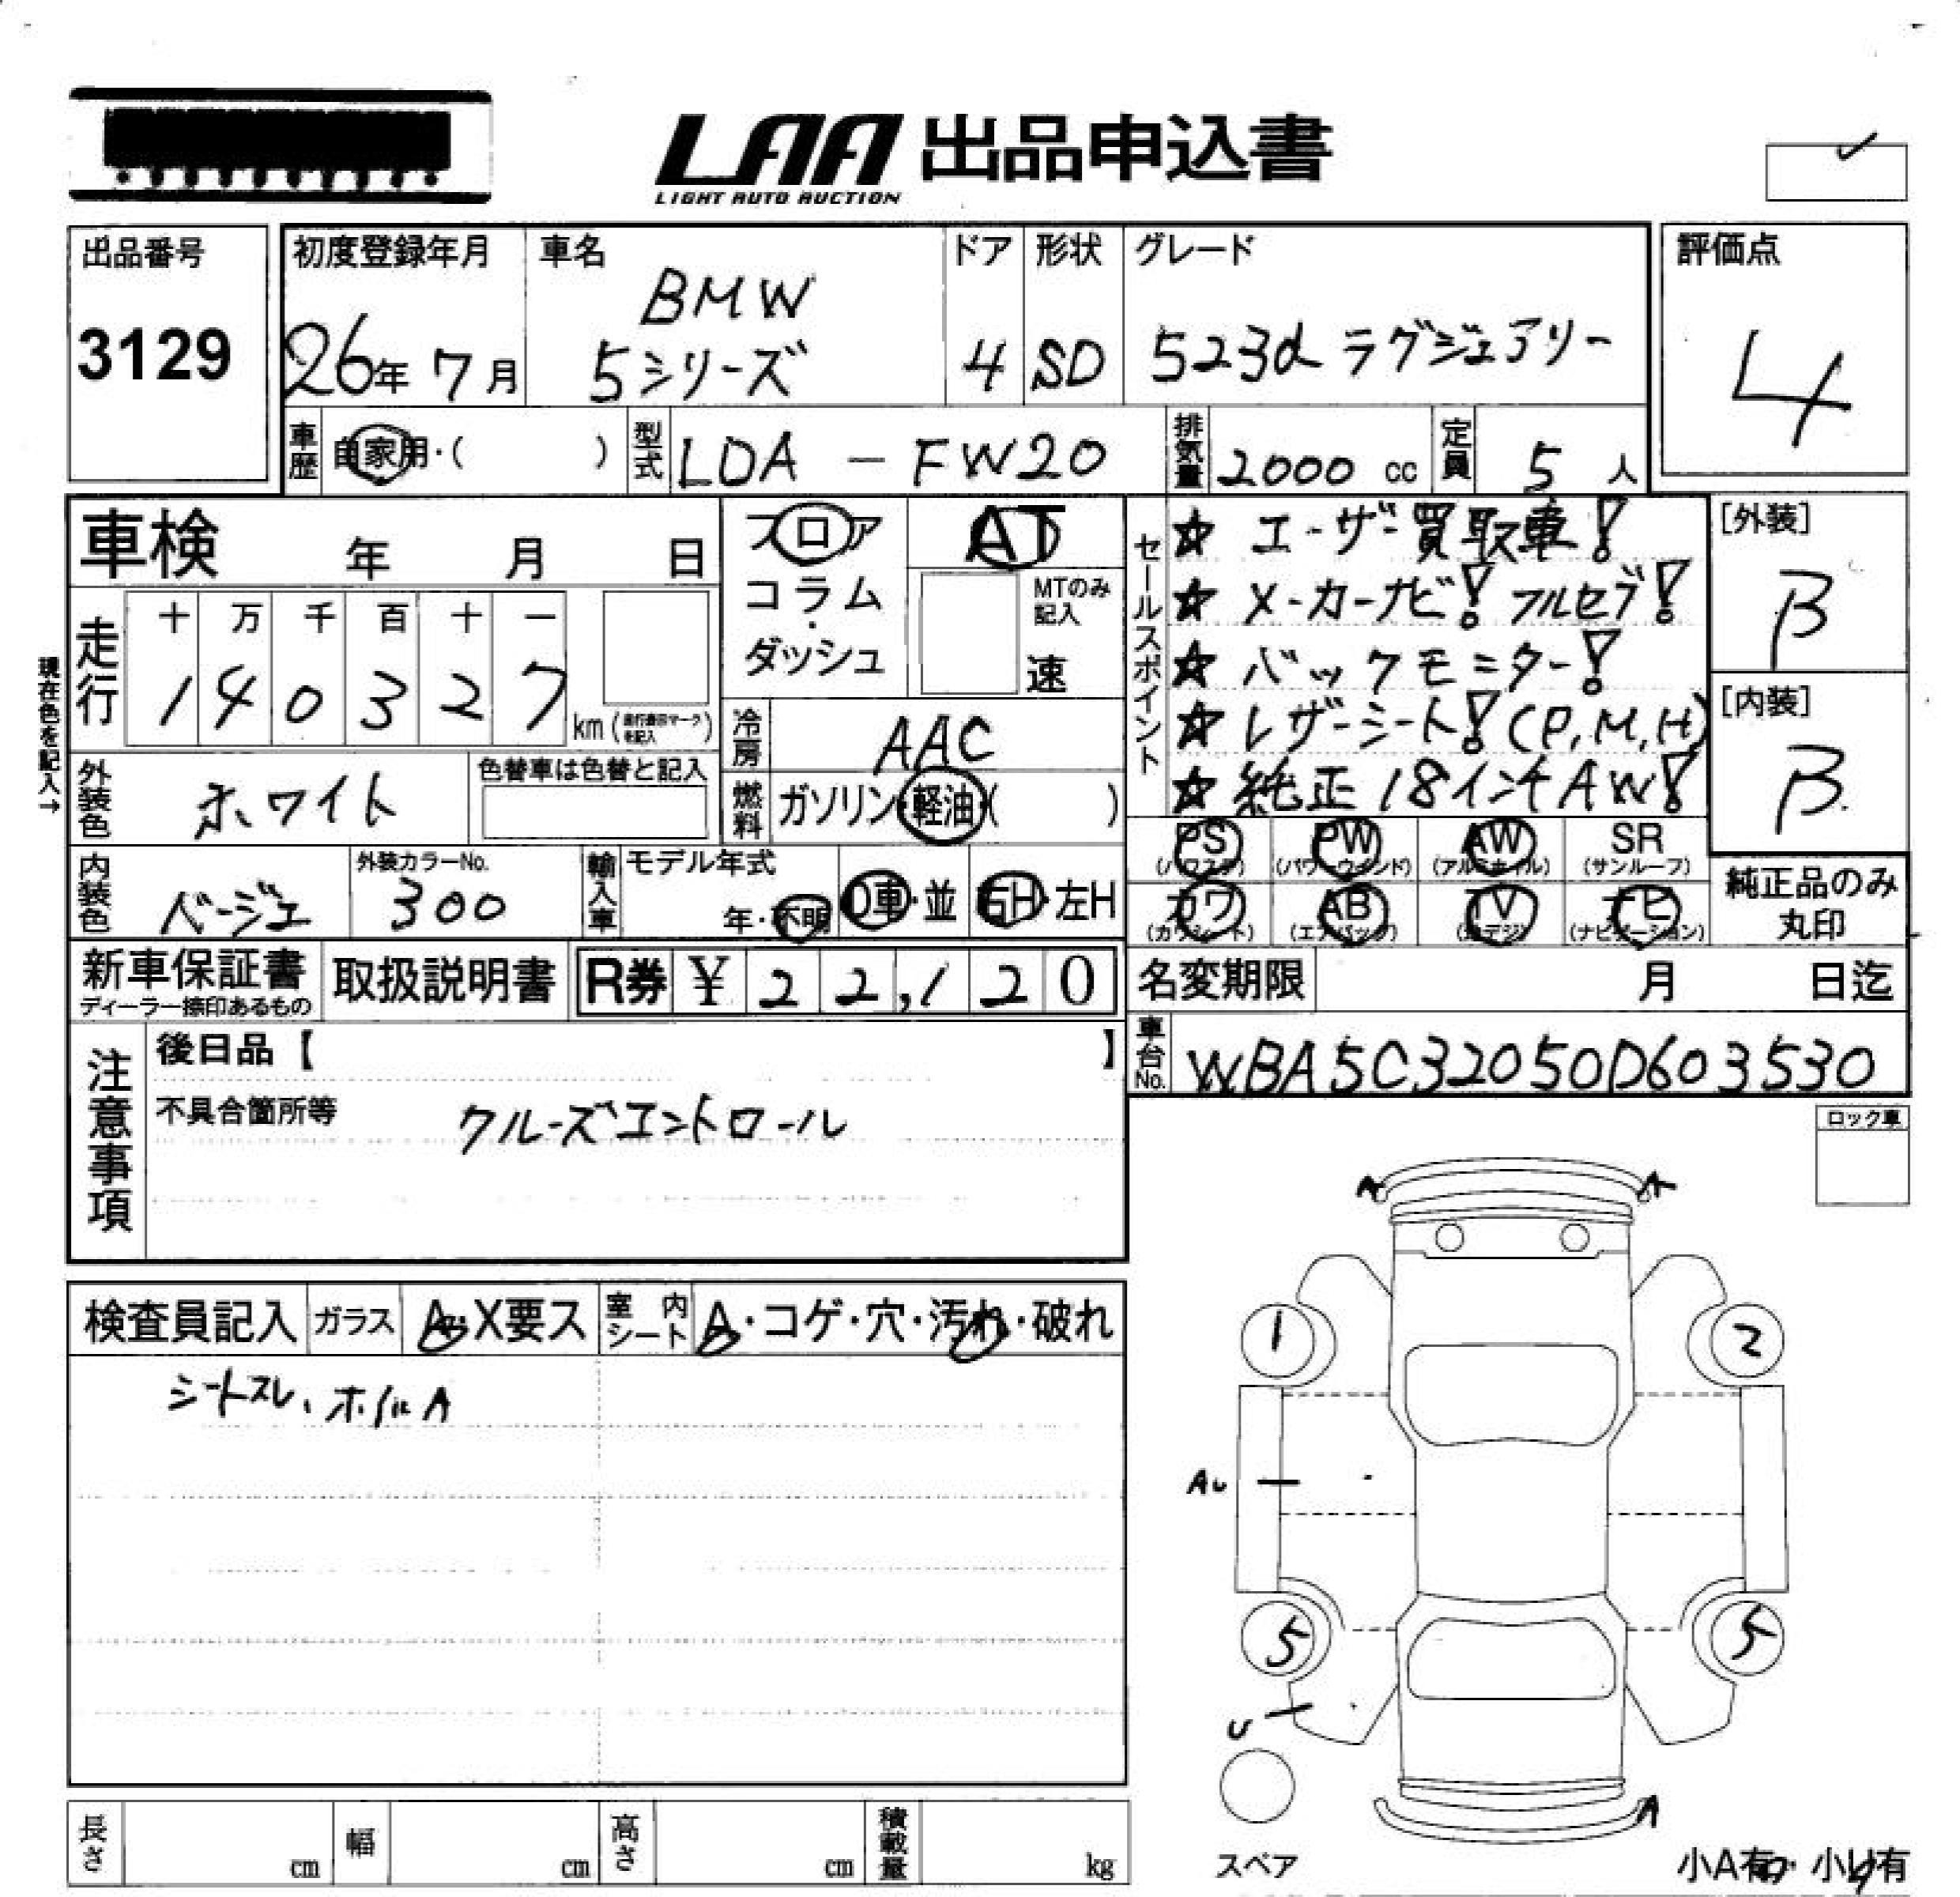 LAA 出品申込書
LIGHT AUTO AUCTION
出品番号
3129
初度登録年月
26年 7月
車名
BMW
5シリーズ
ドア
4
形状
SD
グレード
523d ラグジュアリー
評価点
4
車歴 自家用・( )
型式 LDA - FW20
排気量 2000 cc
定員 5 人
車検 年 月 日
走行
十 万 千 百 十 一
1 4 0 3 2 7 km
現在色を記入→
フロア
コラム
・
ダッシュ
AT
MTのみ
記入
速
冷房 AAC
燃料 ガソリン・軽油・( )
外装色 ホワイト
色替車は色替と記入
内装色 ベージュ
外装カラーNo.
300
輸入車
モデル年式
年・不明
D車・並
右H・左H
セールスポイント
☆ ユーザー買取車!
☆ メーカーナビ! フルセグ!
☆ バックモニター!
☆ レザーシート! (P,M,H)
☆ 純正 18インチAW!
[外装]
B
[内装]
B
PS (パワステ)
PW (パワーウインド)
AW (アルミホイル)
SR (サンルーフ)
カワ (カワシート)
AB (エアバッグ)
TV (地デジ)
ナビ (ナビゲーション)
純正品のみ
丸印
新車保証書
ディーラー捺印あるもの
取扱説明書
R券 ¥ 2 2,1 2 0
名変期限 月 日迄
車台No. WBA5C32050D603530
注意事項
後日品【 】
不具合箇所等
クルーズコントロール
ロック車
検査員記入
ガラス A・X要ス
室内シート A・コゲ・穴・汚れ・破れ
シートスレ、ホイルA
A A
1 2
AU
5 5
U
A
スペア
小A有・小U有
長さ cm
幅 cm
高さ cm
積載量 kg